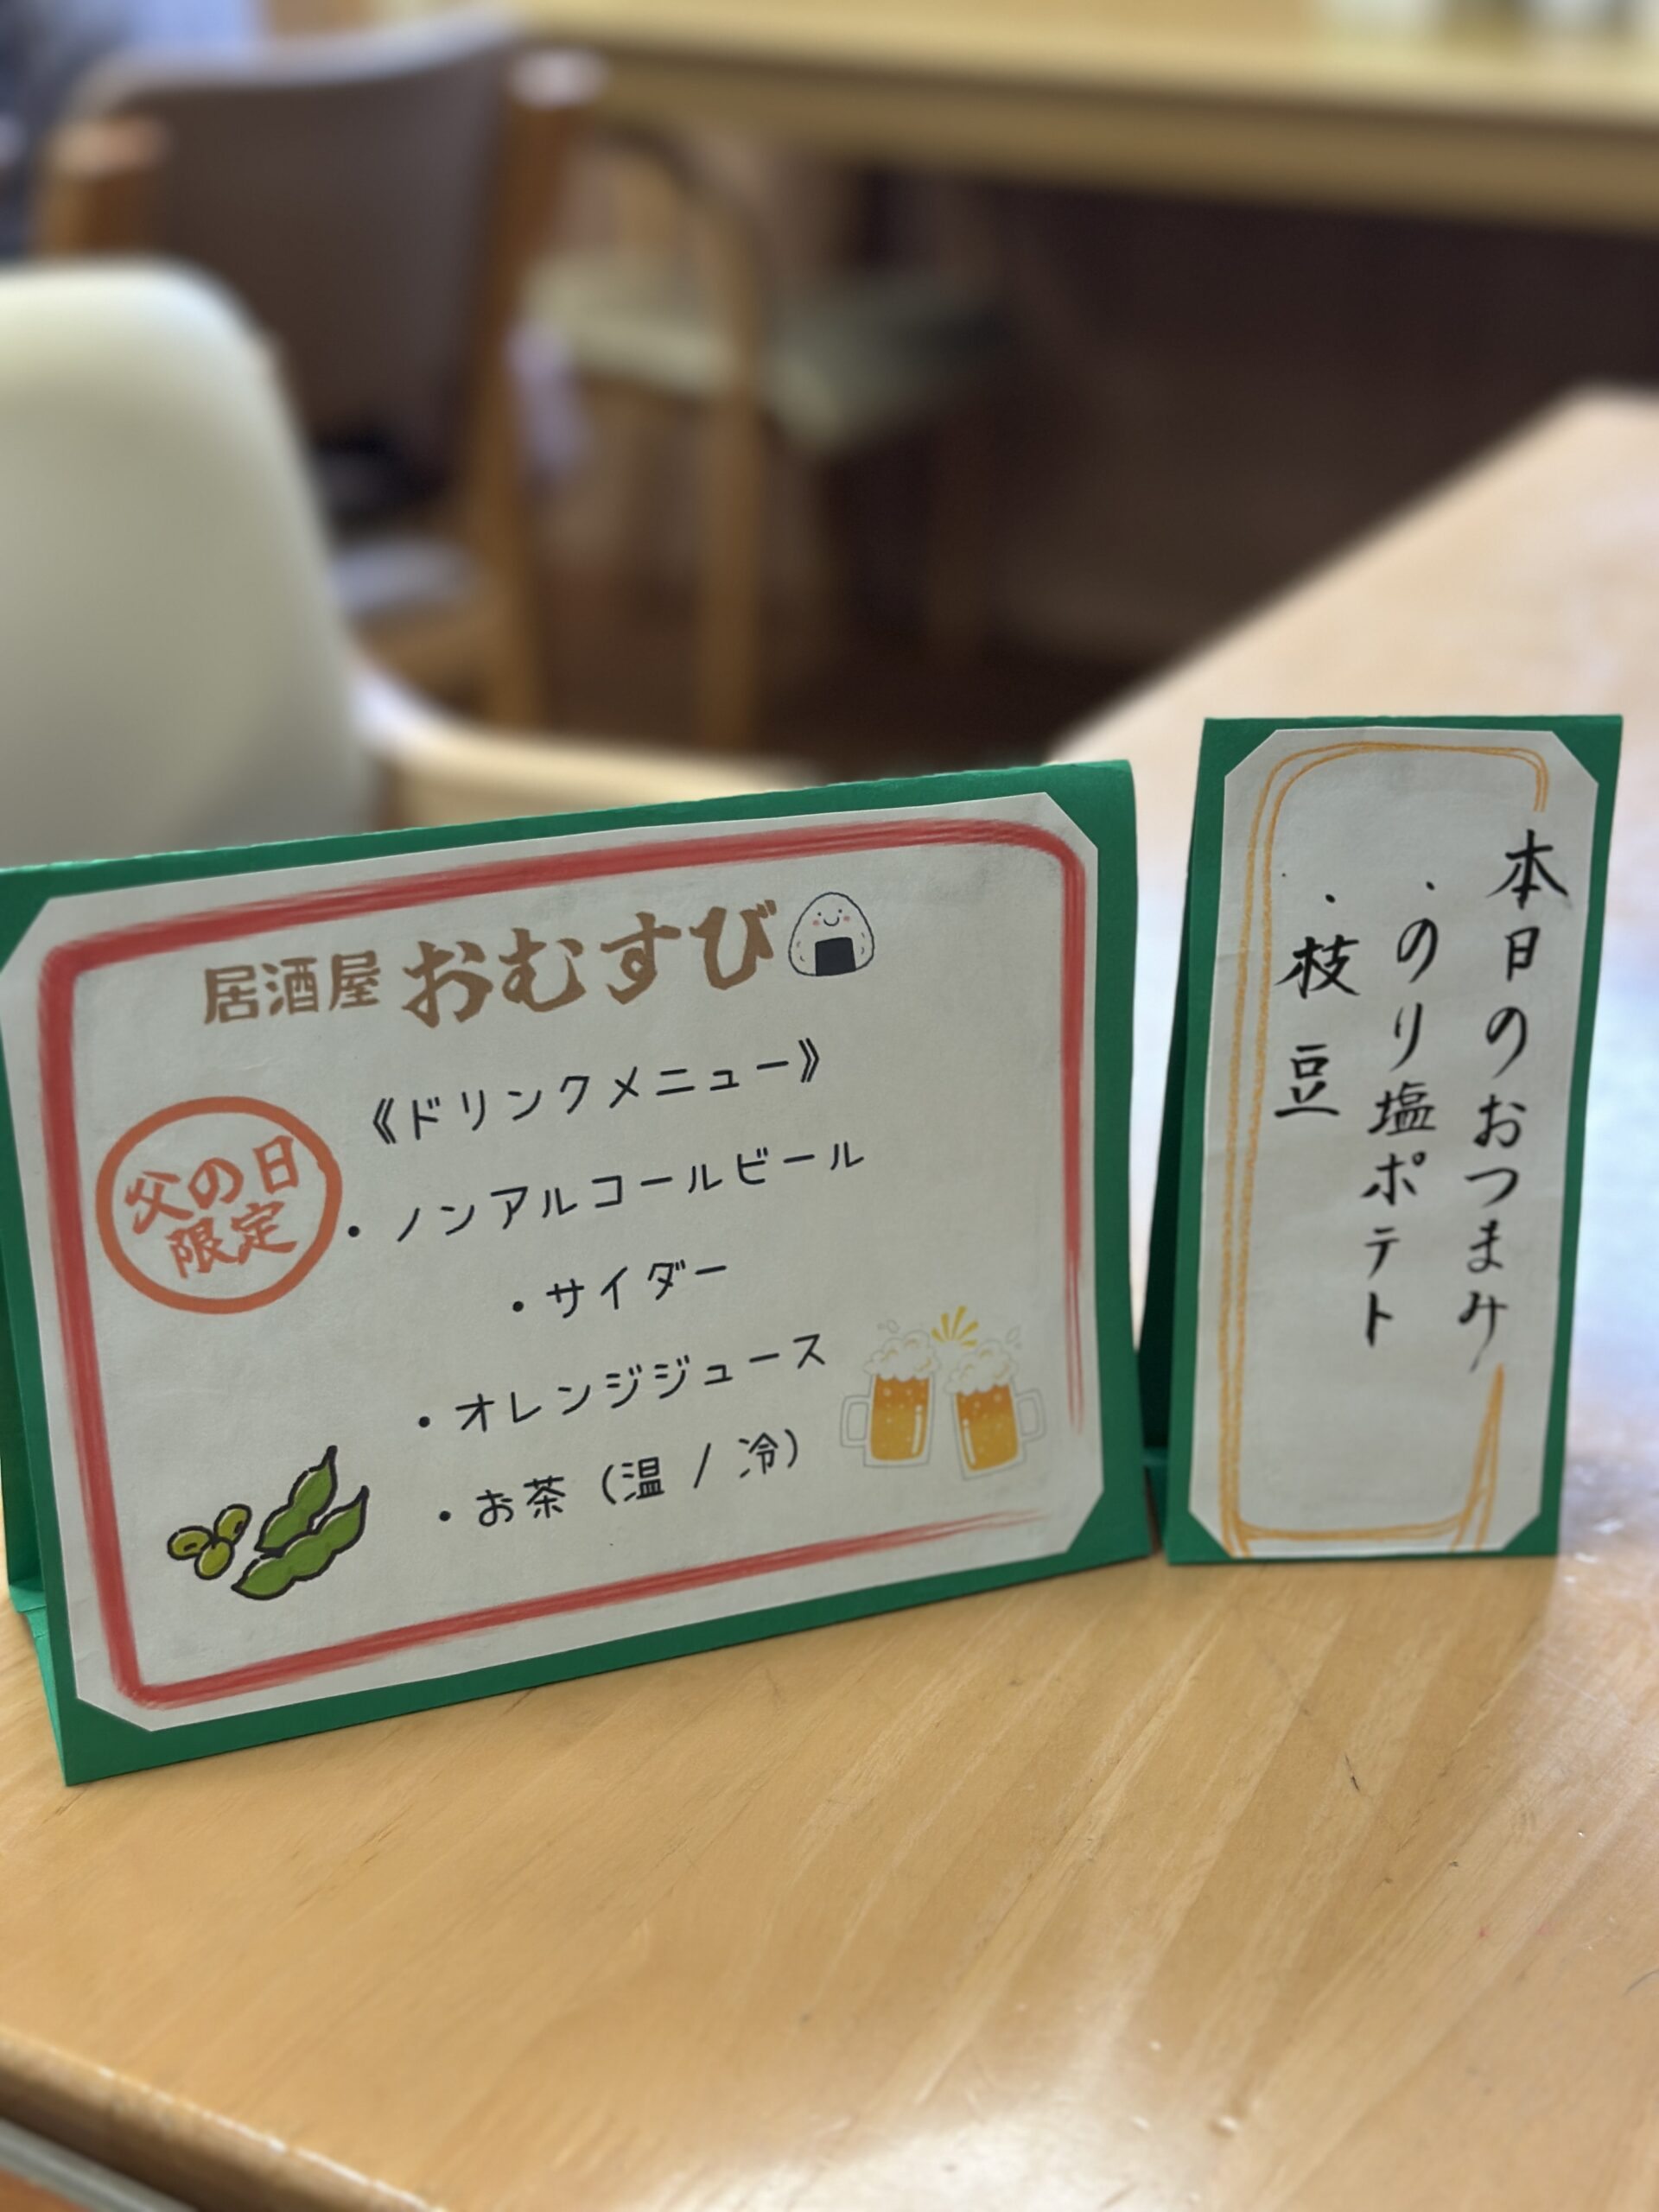 居酒屋 おむすび
《ドリンクメニュー》
父の日
限定
・ノンアルコールビール
・サイダー
・オレンジジュース
・お茶（温 / 冷）
本日のおつまみ
・のり塩ポテト
・枝豆